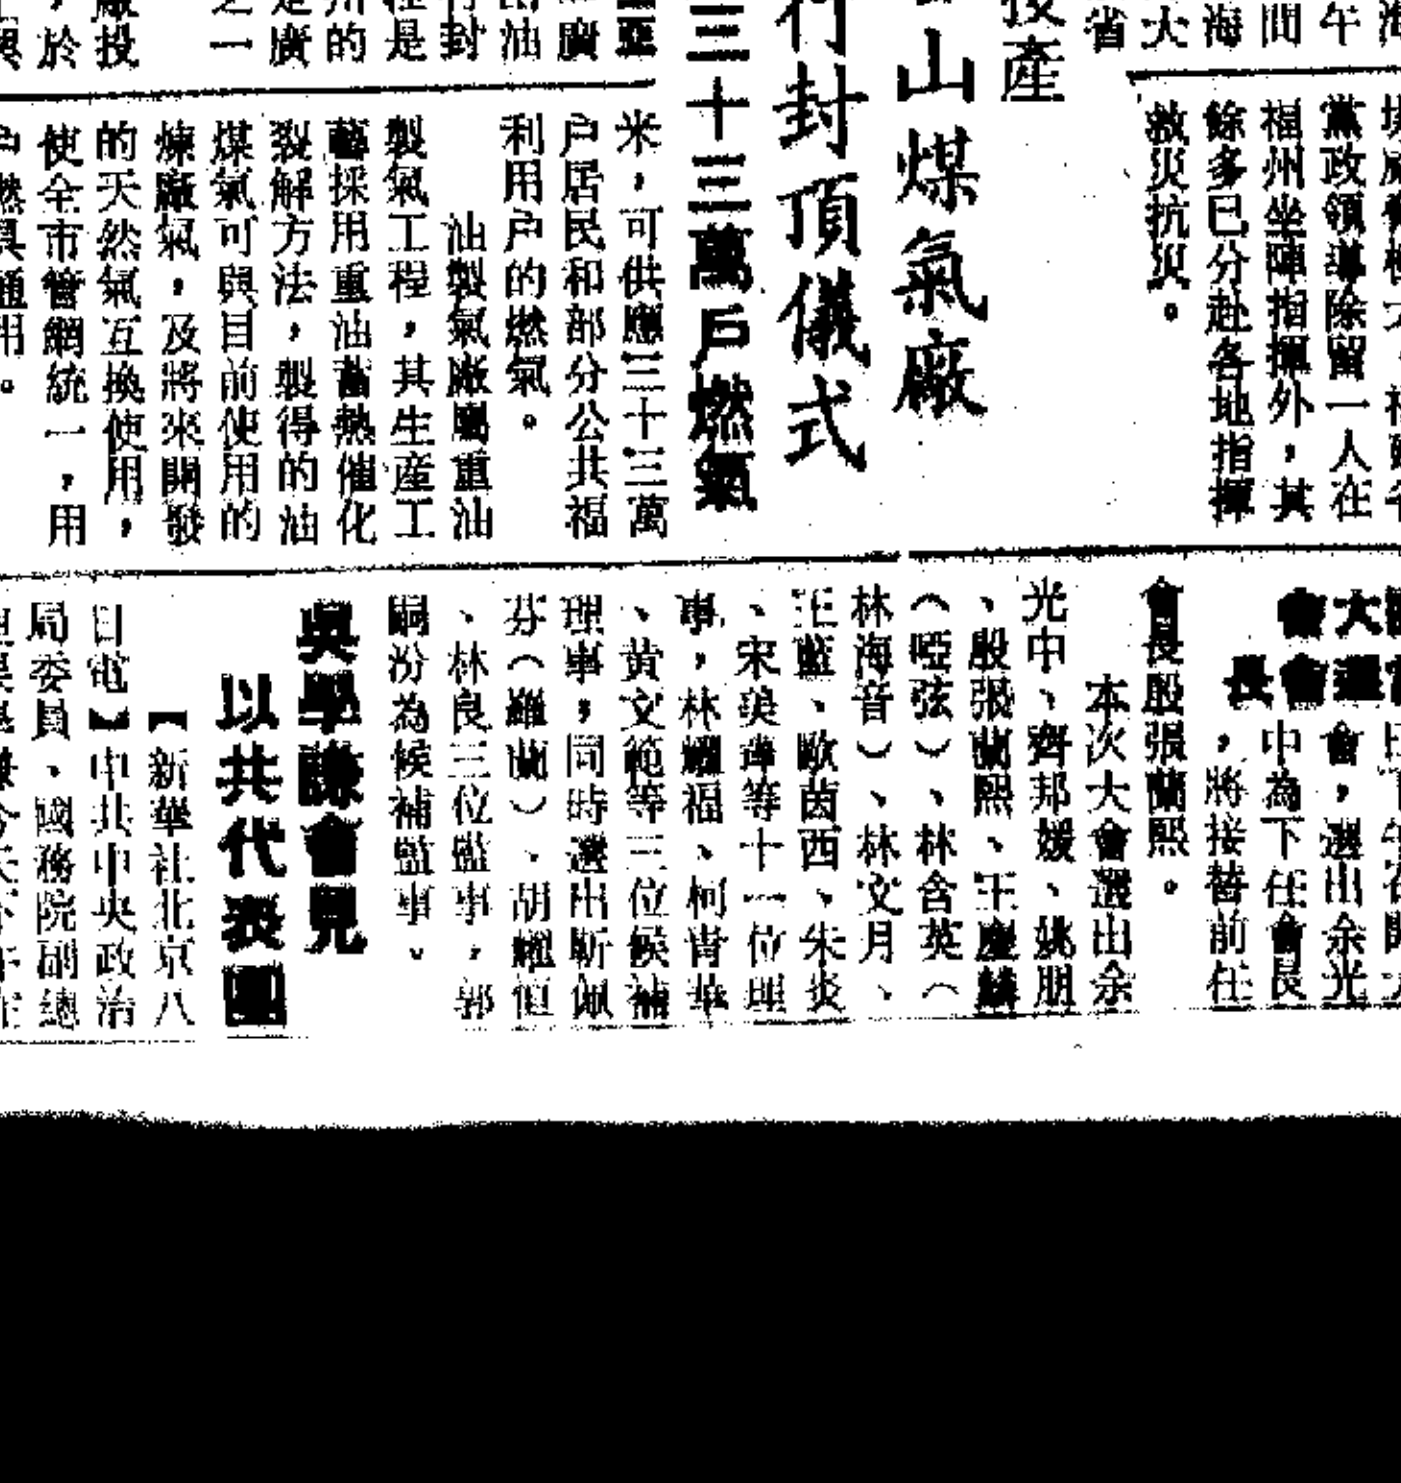 海
午
間
海
大
省
投產
山煤氣廠
行封頂儀式
三十三萬戶燃氣
黨政領導除留一人在
福州坐陣指揮外，其
餘多已分赴各地指揮
救災抗災。
廣
油
封
是
的
廣
之一
廠投
，於
米，可供應三十三萬
戶居民和部分公共福
利用戶的燃氣。
油製氣廠屬重油
製氣工程，其生産工
藝採用重油蓄熱催化
裂解方法，製得的油
煤氣可與目前使用的
煉廠氣，及將來開發
的天然氣互換使用，
使全市管網統一，用
戶燃具通用。
大會選
會會長
會，選出余光
中為下任會長
，將接替前任
會長殷張蘭熙。
本次大會選出余
光中、齊邦媛、姚朋
、殷張蘭熙、王慶麟
（啞弦）、林含英（
林海音）、林文月、
王藍、歐茵西、朱炎
、宋美璍等十一位理
事，林耀福、柯青華
、黃文範等三位候補
理事，同時選出靳佩
芬（羅蘭）、胡耀恒
、林良三位監事，郭
嗣汾為候補監事。
吳學謙會見
以共代表團
【新華社北京八
日電】中共中央政治
局委員、國務院副總